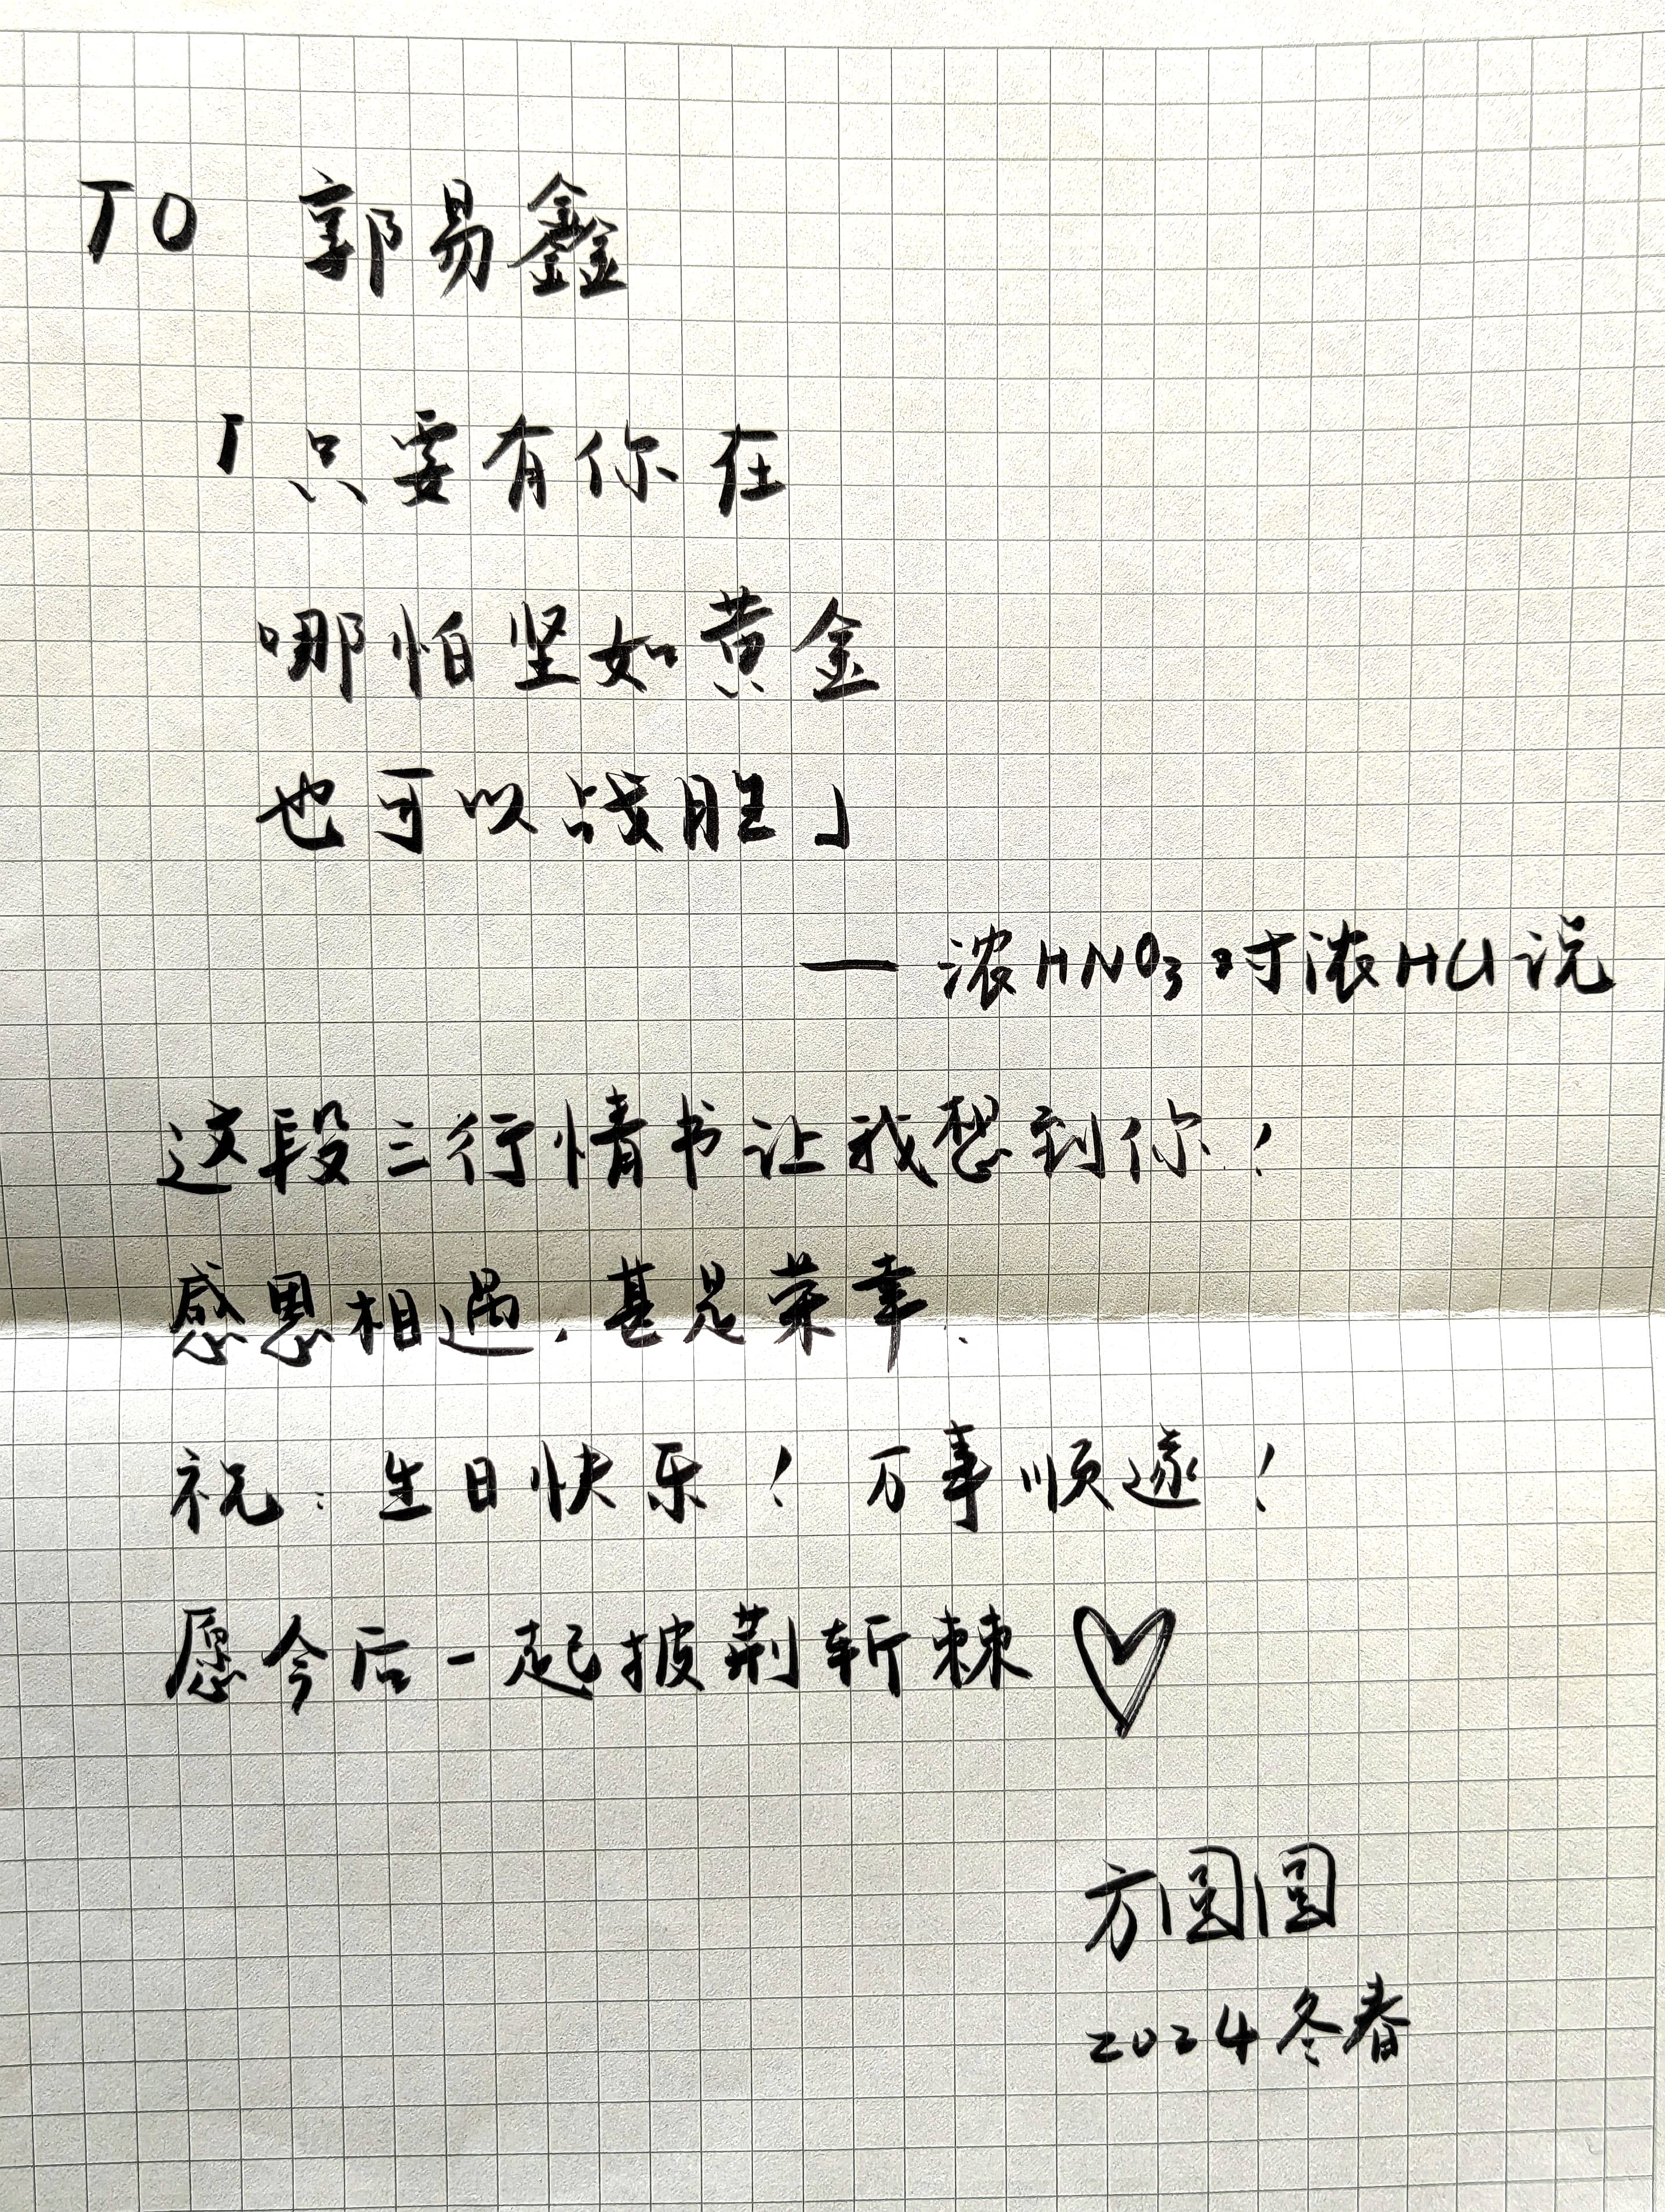 TO 郭易鑫
「只要有你在
哪怕坚如黄金
也可以战胜」
— 浓HNO₃对浓HCl说
这段三行情书让我想到你!
感恩相遇,甚是荣幸.
祝:生日快乐!万事顺遂!
愿今后一起披荆斩棘♡
方圆圆
2024冬春